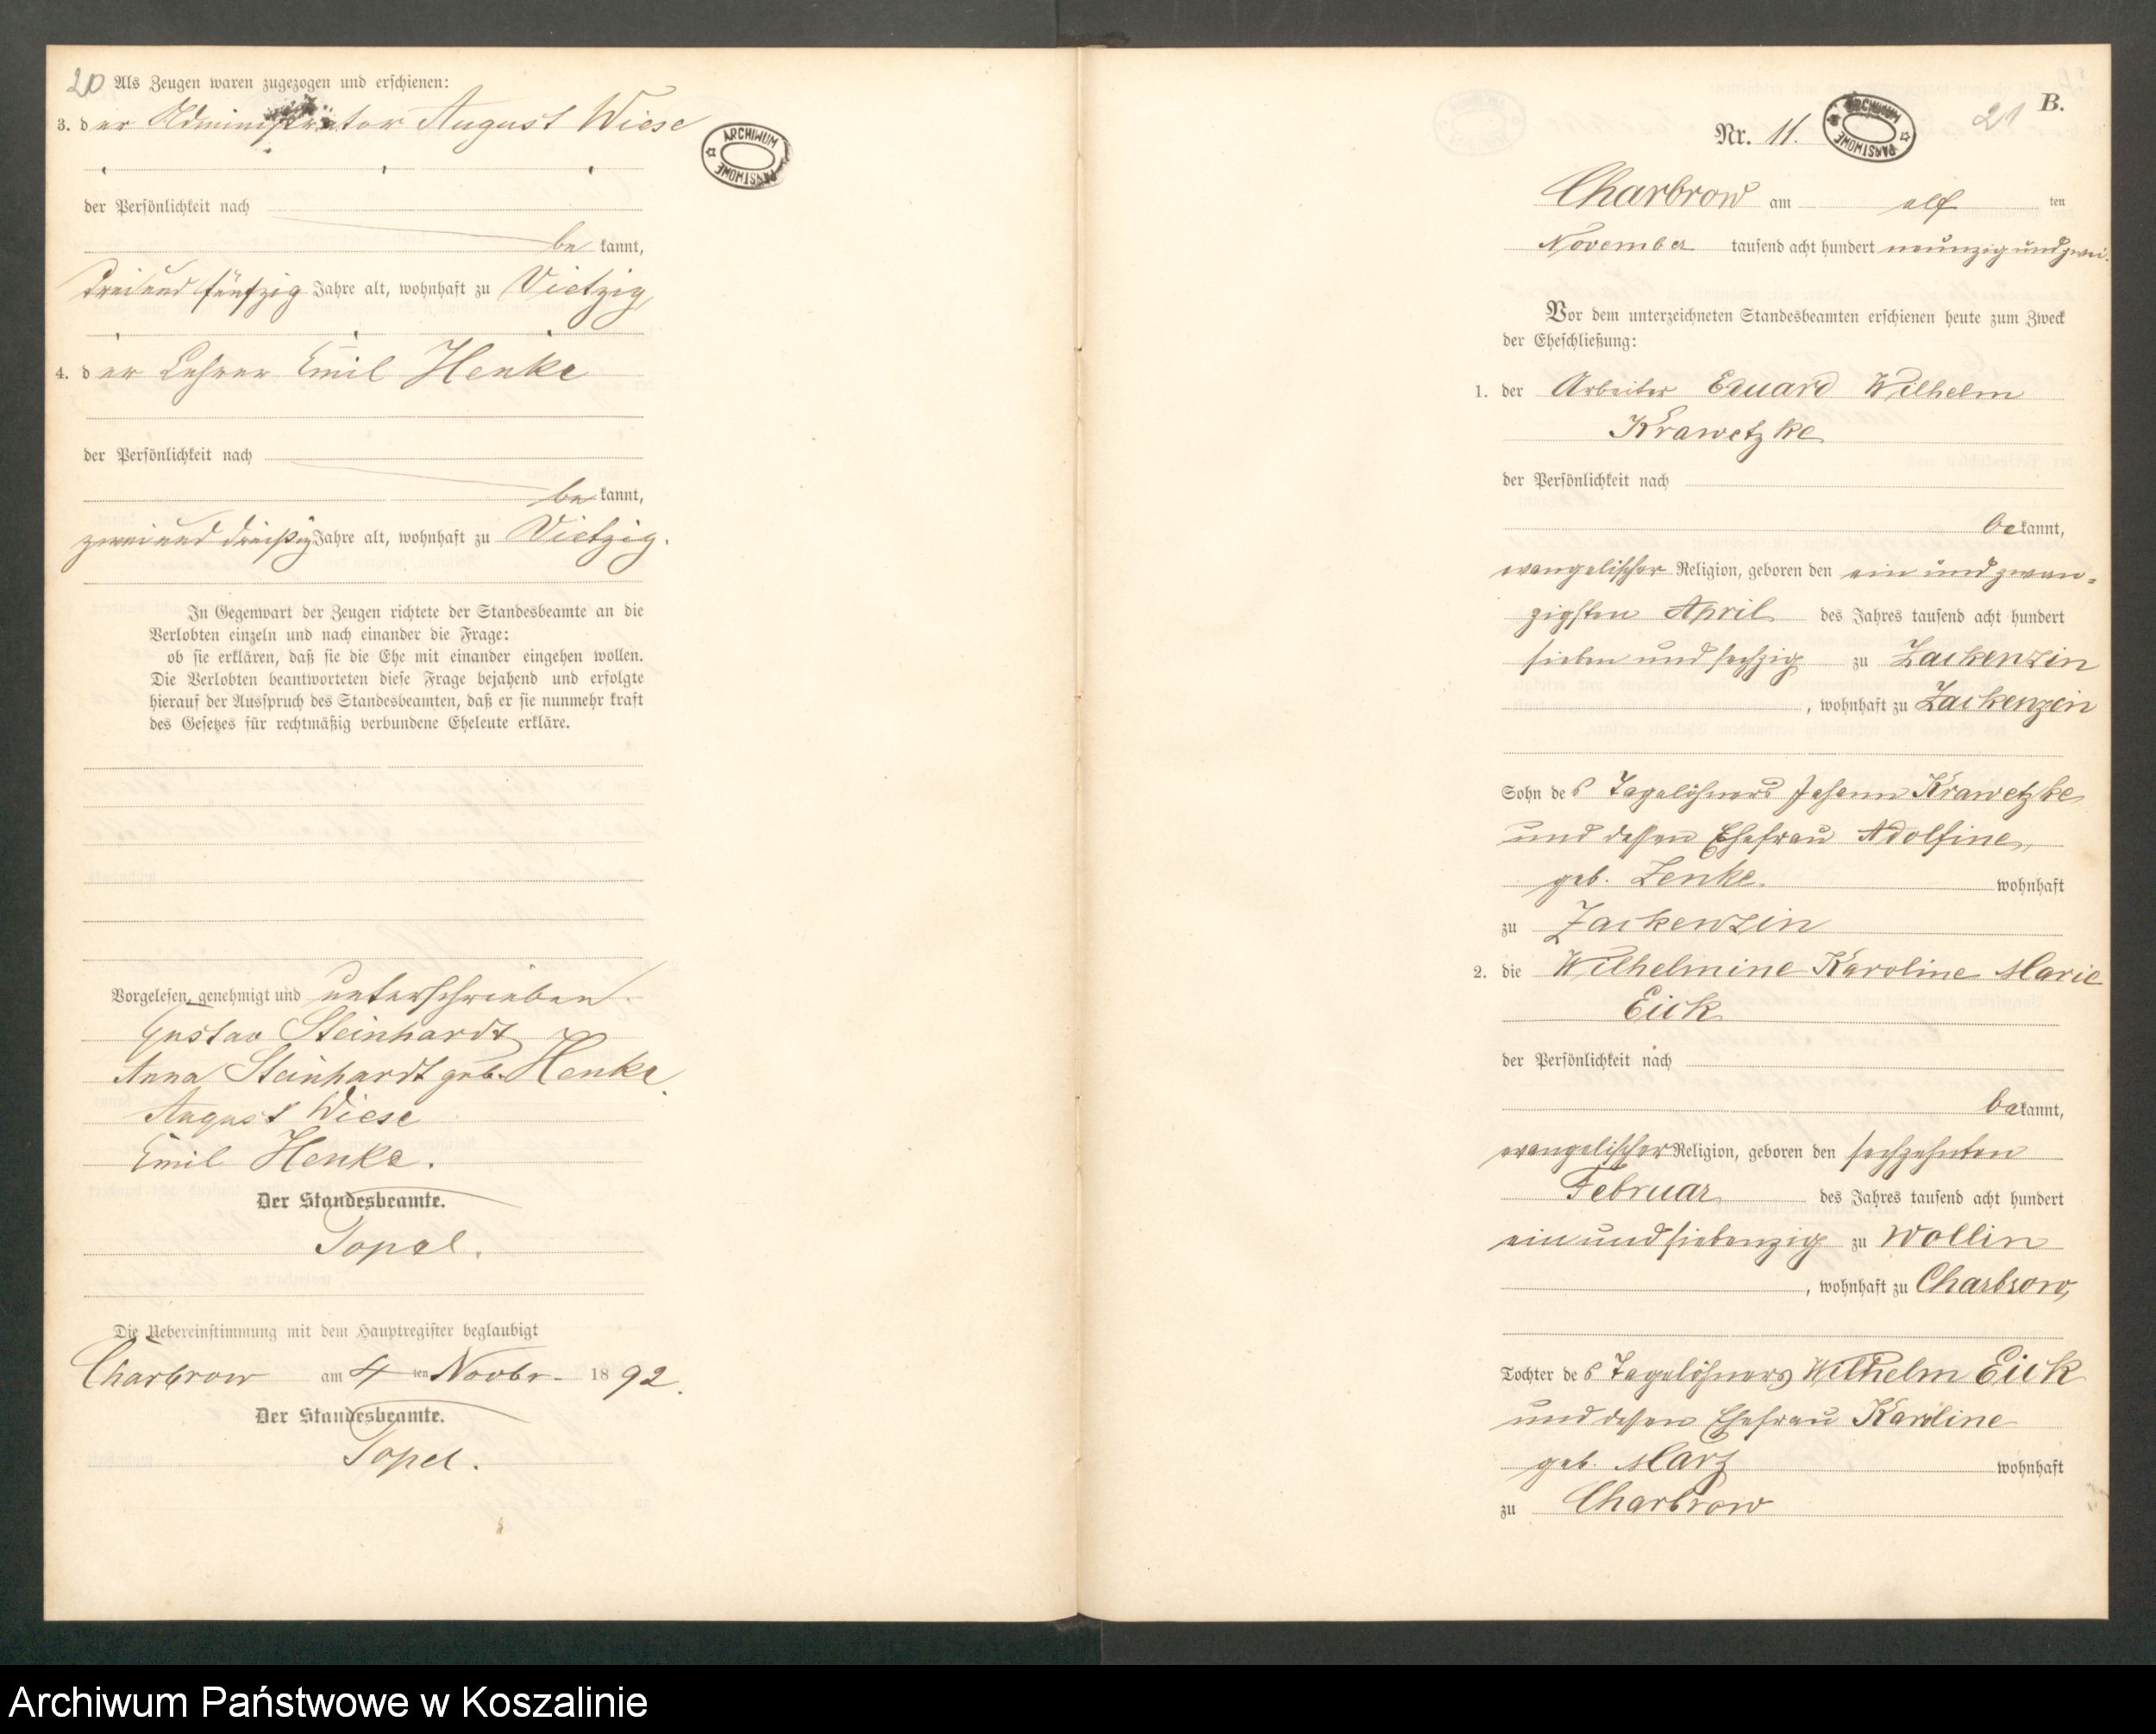 20 Als Zeugen waren zugezogen und erschienen:
3. der Administrator August Wiese
ARCHIWUM PAŃSTWOWE
der Persönlichkeit nach
bekannt,
dreiundfünfzig Jahre alt, wohnhaft zu Vietzig,
4. der Lehrer Emil Henke
der Persönlichkeit nach
bekannt,
zweiunddreißig Jahre alt, wohnhaft zu Vietzig.
In Gegenwart der Zeugen richtete der Standesbeamte an die
Verlobten einzeln und nach einander die Frage:
ob sie erklären, daß sie die Ehe mit einander eingehen wollen.
Die Verlobten beantworteten diese Frage bejahend und erfolgte
hierauf der Ausspruch des Standesbeamten, daß er sie nunmehr kraft
des Gesetzes für rechtmäßig verbundene Eheleute erkläre.
Vorgelesen, genehmigt und unterschrieben.
Gustav Steinhardt
Anna Steinhardt geb. Henke.
August Wiese
Emil Henke.
Der Standesbeamte.
Topel.
Die Uebereinstimmung mit dem Hauptregister beglaubigt
Charbrow am 4 ten Novbr. 1892.
Der Standesbeamte.
Topel.
21 B.
Nr. 11.
ARCHIWUM PAŃSTWOWE
Charbrow am elf ten
November tausend acht hundert neunzig und zwei.
Vor dem unterzeichneten Standesbeamten erschienen heute zum Zweck
der Eheschließung:
1. der Arbeiter Eduard Wilhelm
Krawetzke
der Persönlichkeit nach
bekannt,
evangelischer Religion, geboren den ein und zwan-
zigsten April des Jahres tausend acht hundert
sieben und sechzig zu Zackenzin
, wohnhaft zu Zackenzin
Sohn des Tagelöhners Johann Krawetzke
und dessen Ehefrau Adolfine,
geb. Zenke. wohnhaft
zu Zackenzin
2. die Wilhelmine Karoline Marie
Eick
der Persönlichkeit nach
bekannt,
evangelischer Religion, geboren den sechzehnten
Februar des Jahres tausend acht hundert
ein und siebenzig zu Wollin
, wohnhaft zu Charbrow,
Tochter des Tagelöhners Wilhelm Eick
und dessen Ehefrau Karoline
geb. Marz wohnhaft
zu Charbrow
Archiwum Państwowe w Koszalinie